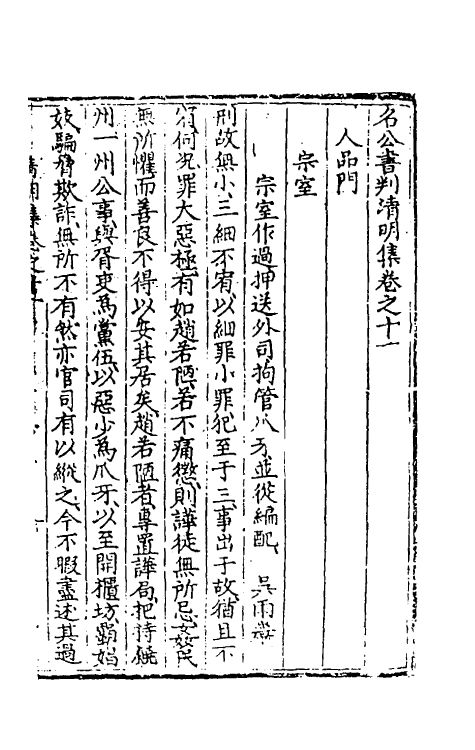 名公書判清明集卷之十一
人品門
宗室
宗室作過押送外司拘管爪牙並從編配　吳雨巖
刑故無小三細不宥以細罪小罪犯至于三事出于故猶且不
須何況罪大惡極有如趙若陋若不痛懲則譁徒無所忌姦民
無所懼而善良不得以安其居矣趙若陋者專置譁局把持饒
州一州公事與胥吏為黨伍以惡少為爪牙以至開櫃坊霸娼
妓騙脅欺詐無所不有然亦官司有以縱之今不暇盡述其過